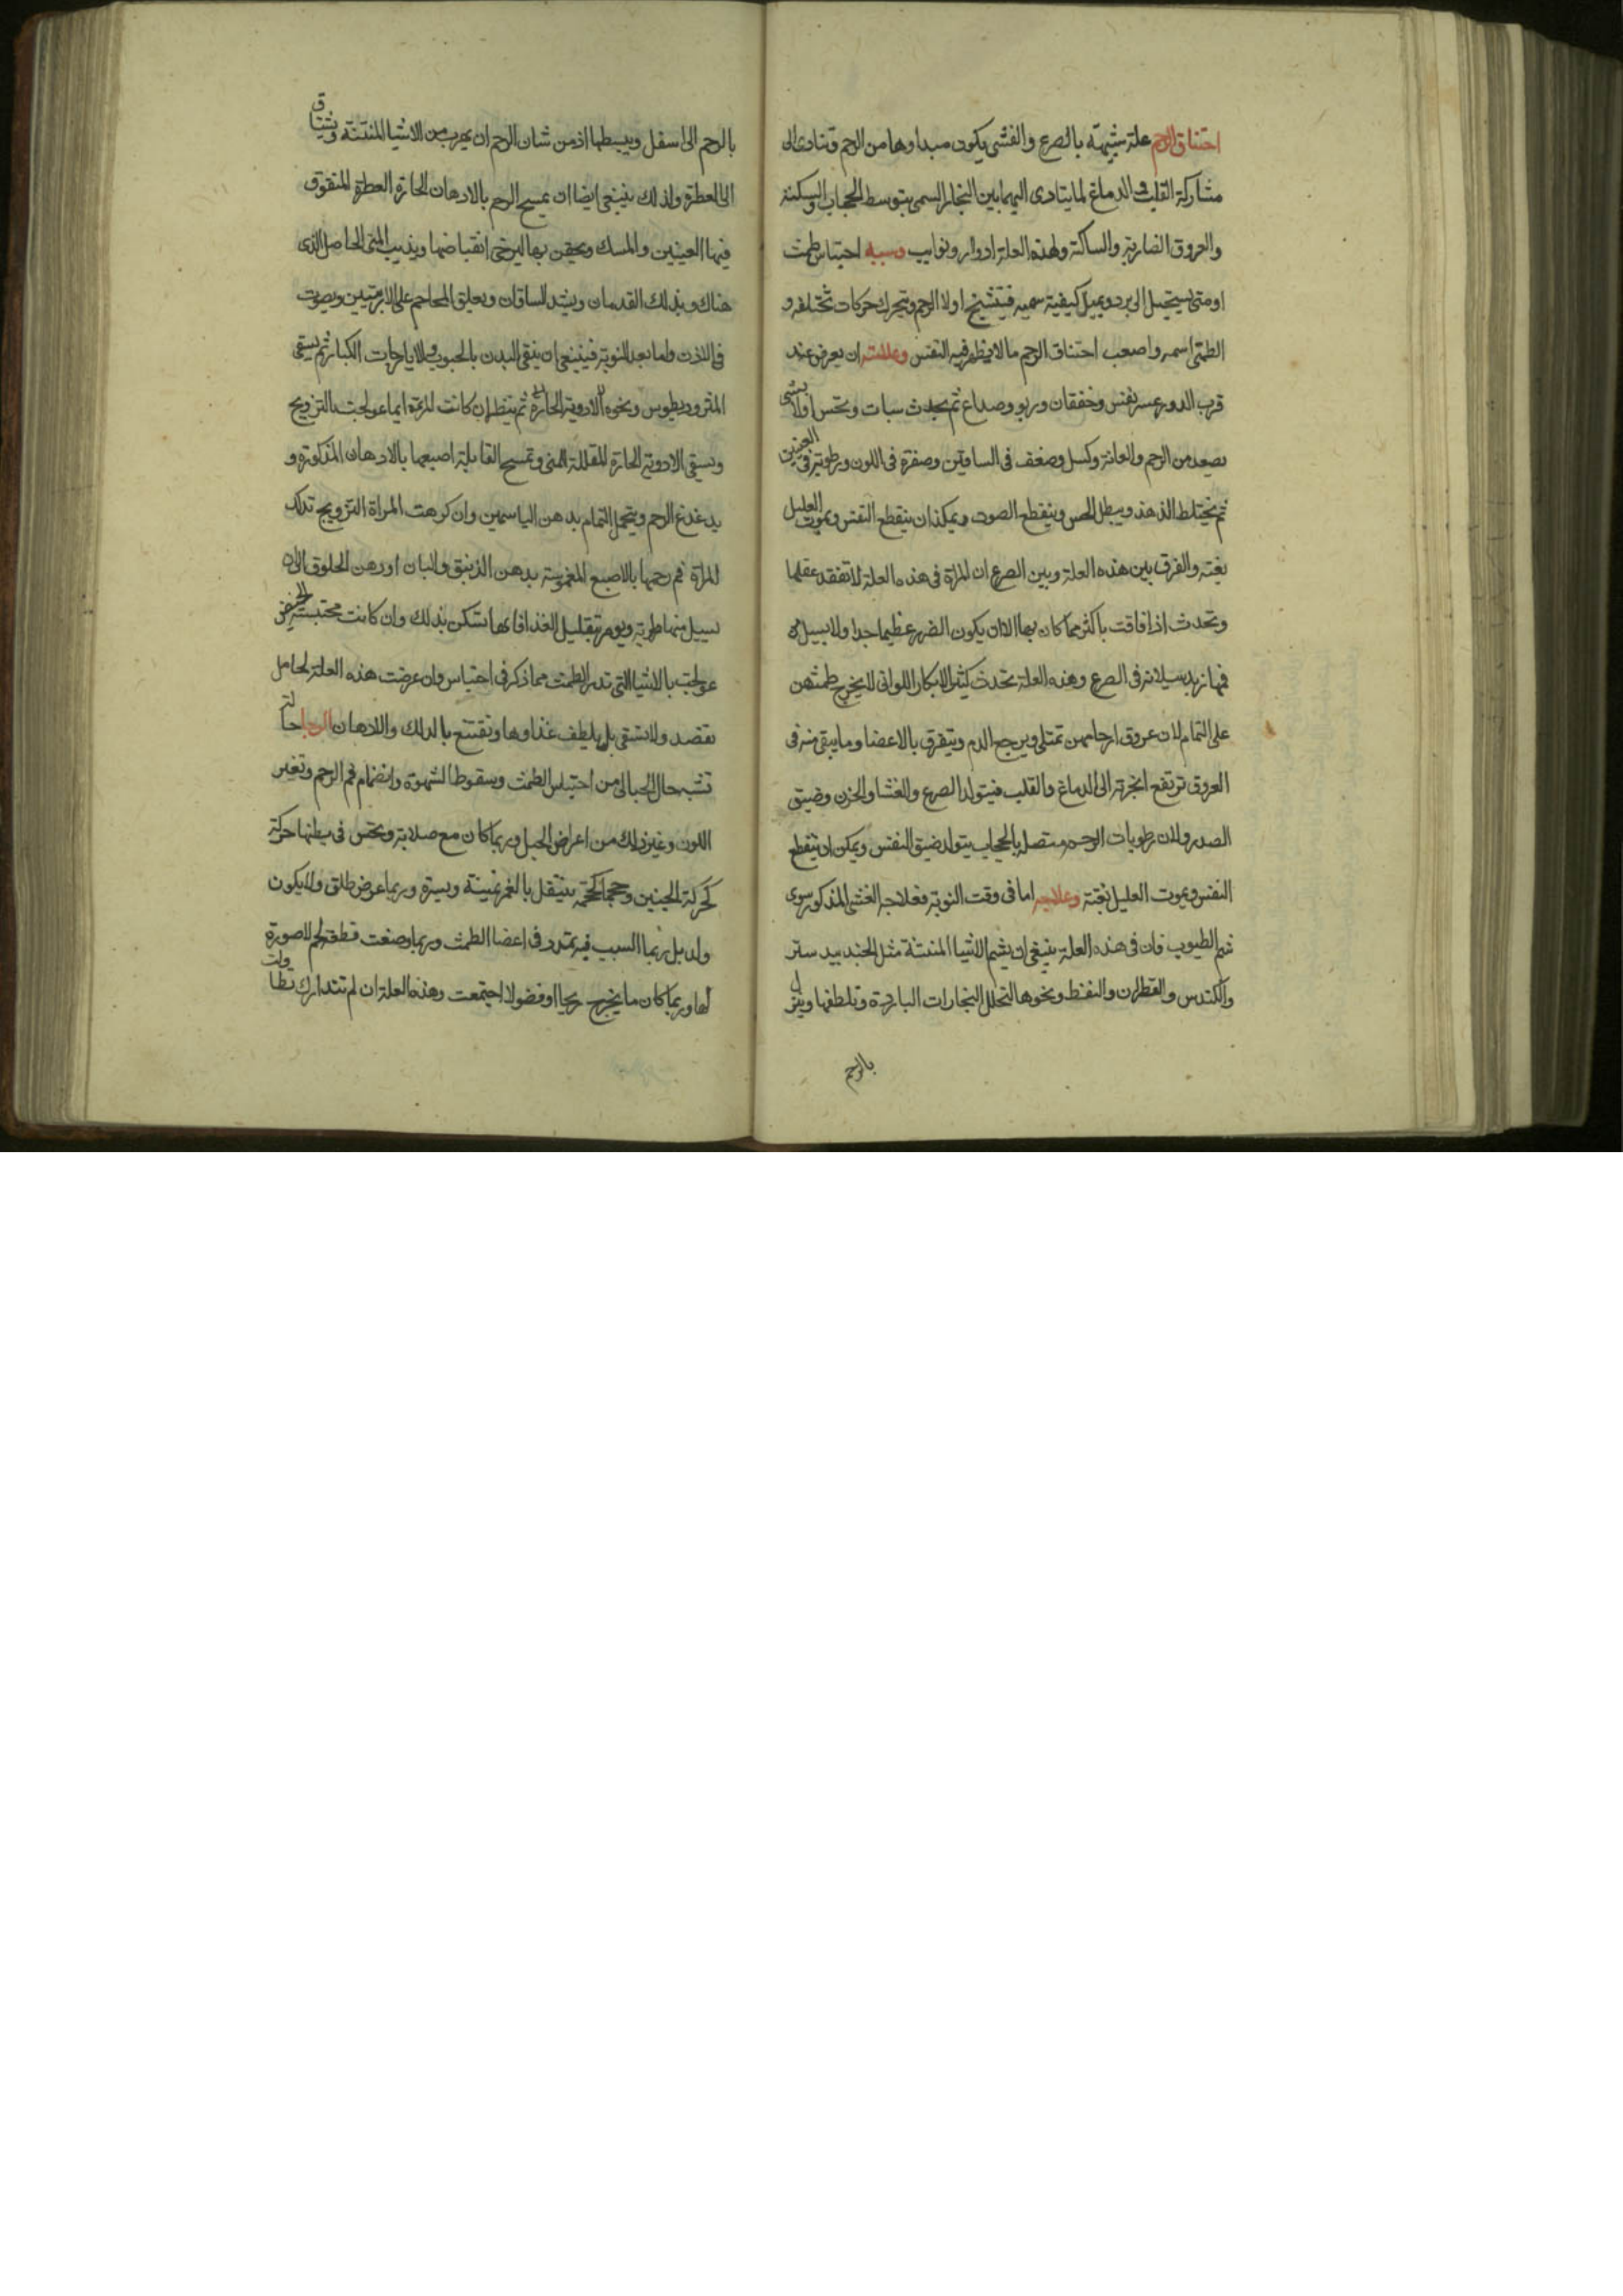 احتناق الرحم علة شبيهة بالصرع والغشى يكون مبداوها من الرحم وتتادى الى
مشاركة القلب والدماغ لما يتادى اليهما بين البخار السمى بتوسط الحجاب والسكنة
والعروق الضاربة والساكنة ولهذه العلة ادوار ونوايب وسببه احتباس طمث
او منى يستحيل الى برد ويميل كيفية سميه فيتشنج اولا الرحم ويتحرك حركات مختلفه و
الطمثى اسمه واصعب احتناق الرحم ما لا يظهر فيه النفس وعلامته ان يعرض عند
قرب الدور عسر نفس وخفقان وربو وصداع ثم يحدث سبات وتحس اولا بشى
يصعد من الرحم والعانة وكسل وضعف فى الساقين وصفرة فى اللون ورطوبة فى العينين
ثم يختلط الذهن ويبطل الحس وينقطع الصوت ويمكن ان ينقطع النفس ويموت العليل
بغتة والفرق بين هذه العلة وبين الصرع ان المراة فى هذه العلة لا تفقد عقلها
وتحدث اذا فاقت باكثر مما كان بها الا ان يكون الضرر عظيما جدا ولا يسيل من
فمها زبد سيلانه فى الصرع وهذه العلة تحدث كثير الابكار اللواتى لا يخرج طمثهن
على التمام لان عروق ارحامهن تمتلى ويرجع الدم ويتفرق بالاعضا وما يبقى منه فى
العروق ترتفع ابخرته الى الدماغ والقلب فيتولد الصرع والغشا والحزن وضيق
الصدر ولان رطوبات الرحم متصلة بالحجاب يتولد ضيق النفس ويمكن ان ينقطع
النفس ويموت العليل بغتة وعلاجه اما فى وقت النوبة فعلاجه الغشى المذكور سوى
شم الطيوب فان فى هذه العلة ينبغى ان يشم الاشيا المنتنة مثل الجند بيد ستر
والكندس والقطران والنفط ونحوها لتحلل البخارات الباردة وتلطفها وينزل
بالرحم
بالرحم الى اسفل ويبسطها اذ من شان الرحم ان يهرب من الاشيا المنتنة ويشتاق
الى العطرة ولذلك ينبغى ايضا ان يمسح الرحم بالادهان الحارة العطرة المنقوق
فيها العينين والمسك ويحقن بها ليرخى انقباضها ويذيب المنى الحاصل الذى
هناك وبذلك القدمان ويشد الساقان ويعلق المحاجم على الاربيتين ويصوت
فى الاذن واما بعد النوبة فينبغى ان ينقى البدن بالحبوب والايارجات الكبار ثم يسقى
المثروديطوس ونحوه الادوية الحارة ثم ينظر ان كانت المرة ايما عولجت بالتزويج
وتسقى الادوية الحارة المقللة المنى وتمسح القابلة اصبعها بالادهان المذكورة و
يدغدغ الرحم ويتحمل التمام بدهن الياسمين وان كرهت المراة التزويج تدلك
المراة فم رحمها بالاصبع المغموسة بدهن الزنبق والبان او دهن الحلوق الى ان
يسيل منها رطوبة ويومر بتقليل الغذا فانها تسكن بذلك وان كانت محتبسة الحيض
عولجت بالاشيا التى تدر الطمث مما ذكر فى احتباس وان عرضت هذه العلة لحامل
تفصد ولا تسقى بل يلطف غذاوها وتقتنع بالدلك والادهان الرجا حالة
تشبه حال الحبالى من احتباس الطمث وسقوط الشهوة وانضمام فم الرحم وتغير
اللون وغير ذلك من اعراض الحبل وربما كان مع صلابة وتحس فى بطنها حركة
كحركة الجنين وحجما كحجمه ينتقل بالغمز يمينة ويسرة وربما عرض طلق ولا يكون
ولد بل ربما السبب فيه تمدد فى اعضا الطمث وربما وضعت قطعة لحم لا صورة
لها وربما كان ما يخرج ريحا او فضولا اجتمعت وهذه العلة ان لم تتدارك تطاولت